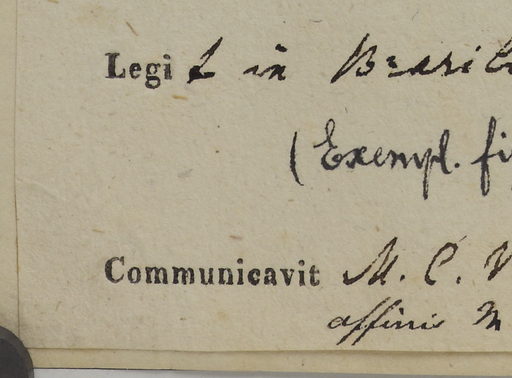 Legit in Brasil
(Exempl. fi
Communicavit M. C. V
affinis M